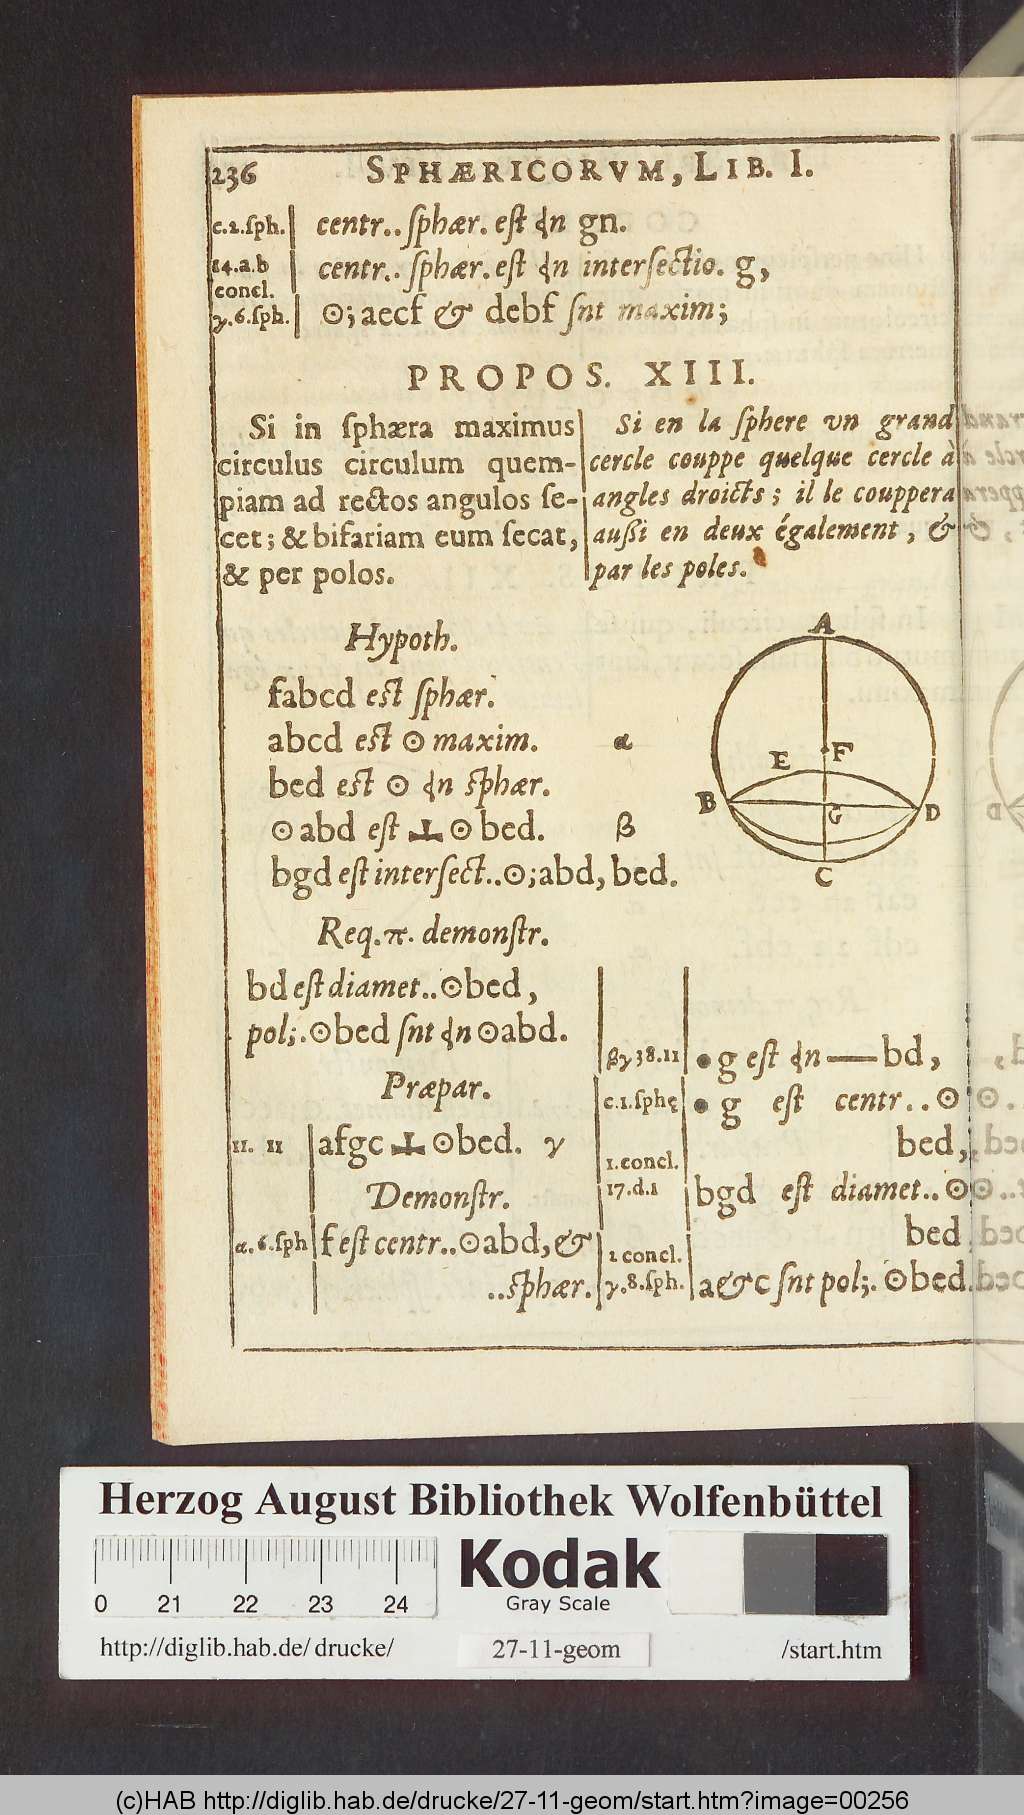 236 SPHÆRICORVM, LIB. I.
c.2.ſph. centr.. ſphær. eſt ɖn gn.
14.a.b centr.. ſphær. eſt ɖn interſectio. g,
concl.
γ.6.ſph. ⊙; aecf & debf ſnt maxim;
PROPOS. XIII.
Si in ſphæra maximus
circulus circulum quem-
piam ad rectos angulos ſe-
cet; & bifariam eum ſecat,
& per polos.
Si en la ſphere vn grand
cercle couppe quelque cercle à
angles droicts; il le couppera
außi en deux également, &
par les poles.
Hypoth.
fabcd eſt ſphær.
abcd eſt ⊙ maxim. α
bed est ⊙ ɖn ſphær.
⊙ abd eſt ⊥ ⊙ bed. β
bgd eſt interſect..⊙; abd, bed.
A
E
F
B
G
D
C
Req. π. demonſtr.
bd eſt diamet..⊙bed,
pol;. ⊙bed ſnt ɖn ⊙abd.
Præpar.
11. 11 afgc ⊥ ⊙bed. γ
Demonſtr.
α.6.ſph f eſt centr..⊙abd, &
..ſphær.
βγ38.11 • g eſt ɖn — bd,
c.1.ſphę • g eſt centr..⊙
bed,
1.concl.
17.d.1 bgd eſt diamet..⊙
bed
1 concl.
γ.8.ſph. a & c ſnt pol;. ⊙bed.
Herzog August Bibliothek Wolfenbüttel
0 21 22 23 24
Kodak
Gray Scale
http://diglib.hab.de/ drucke/ 27-11-geom /start.htm
(c)HAB http://diglib.hab.de/drucke/27-11-geom/start.htm?image=00256